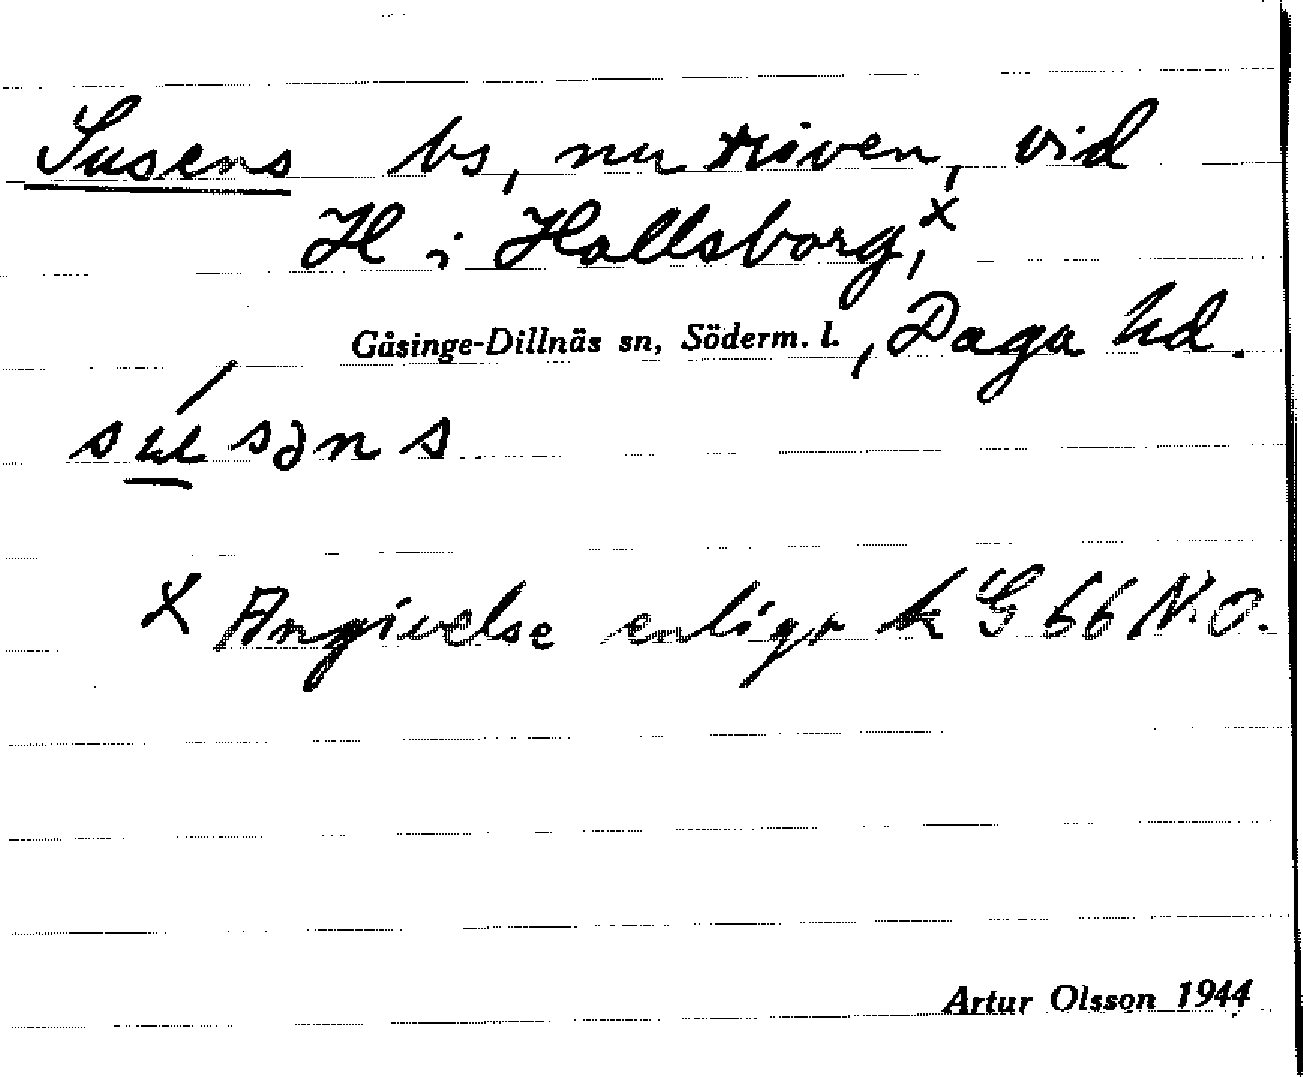 Susens bs, nu riven, vid
H i Hallsborg,x
Gåsinge-Dillnäs sn, Söderm. l., Daga hd.
sú̱səns
x Angivelse enligt k G 66 N.O.
Artur Olsson 1944